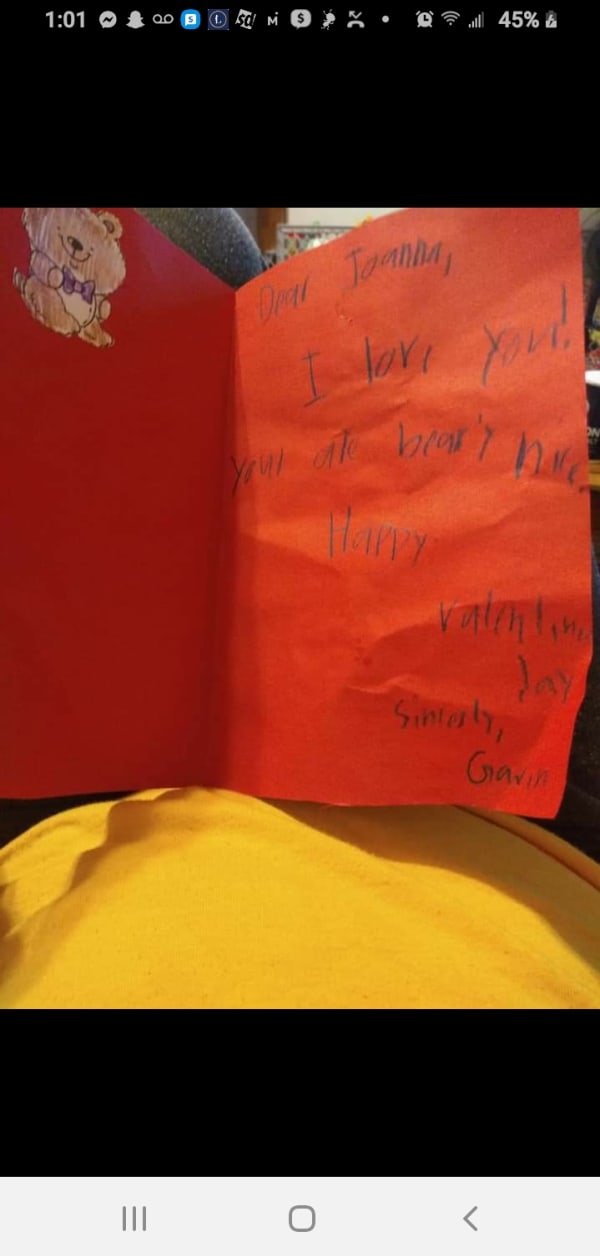 1:01
45%
Dear Joanna,
I love you!
your are beary nice
Happy
Valentine
Day
Sincerly,
Gavin